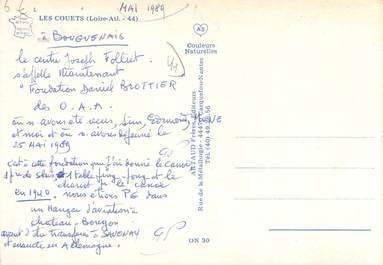 MAI 1989
LES COUETS (Loire-Atl. - 44)
à BOUGUENAIS
le centre Joseph Folliet
s'appelle maintenant
"Fondation Daniel BROTTIER
des O.A.A.
où n. avons été reçus, Edmond, IRENE
et moi et où n. avons déjeuné le
25 MAI 1989
c'est à cette fondation que j'ai donné le Canoë
1 table ping-pong et le
chariot du canoë
en 1940 nous étions PG dans
un Hangar d'aviation à
chateau-Bougon
avant d'être transférés à SAVENAY
et ensuite en Allemagne.
GP
Couleurs
Naturelles
ARTAUD Frères, Editeurs
Rue de la Métallurgie - 44470 Carquefou-Nantes
ON 30